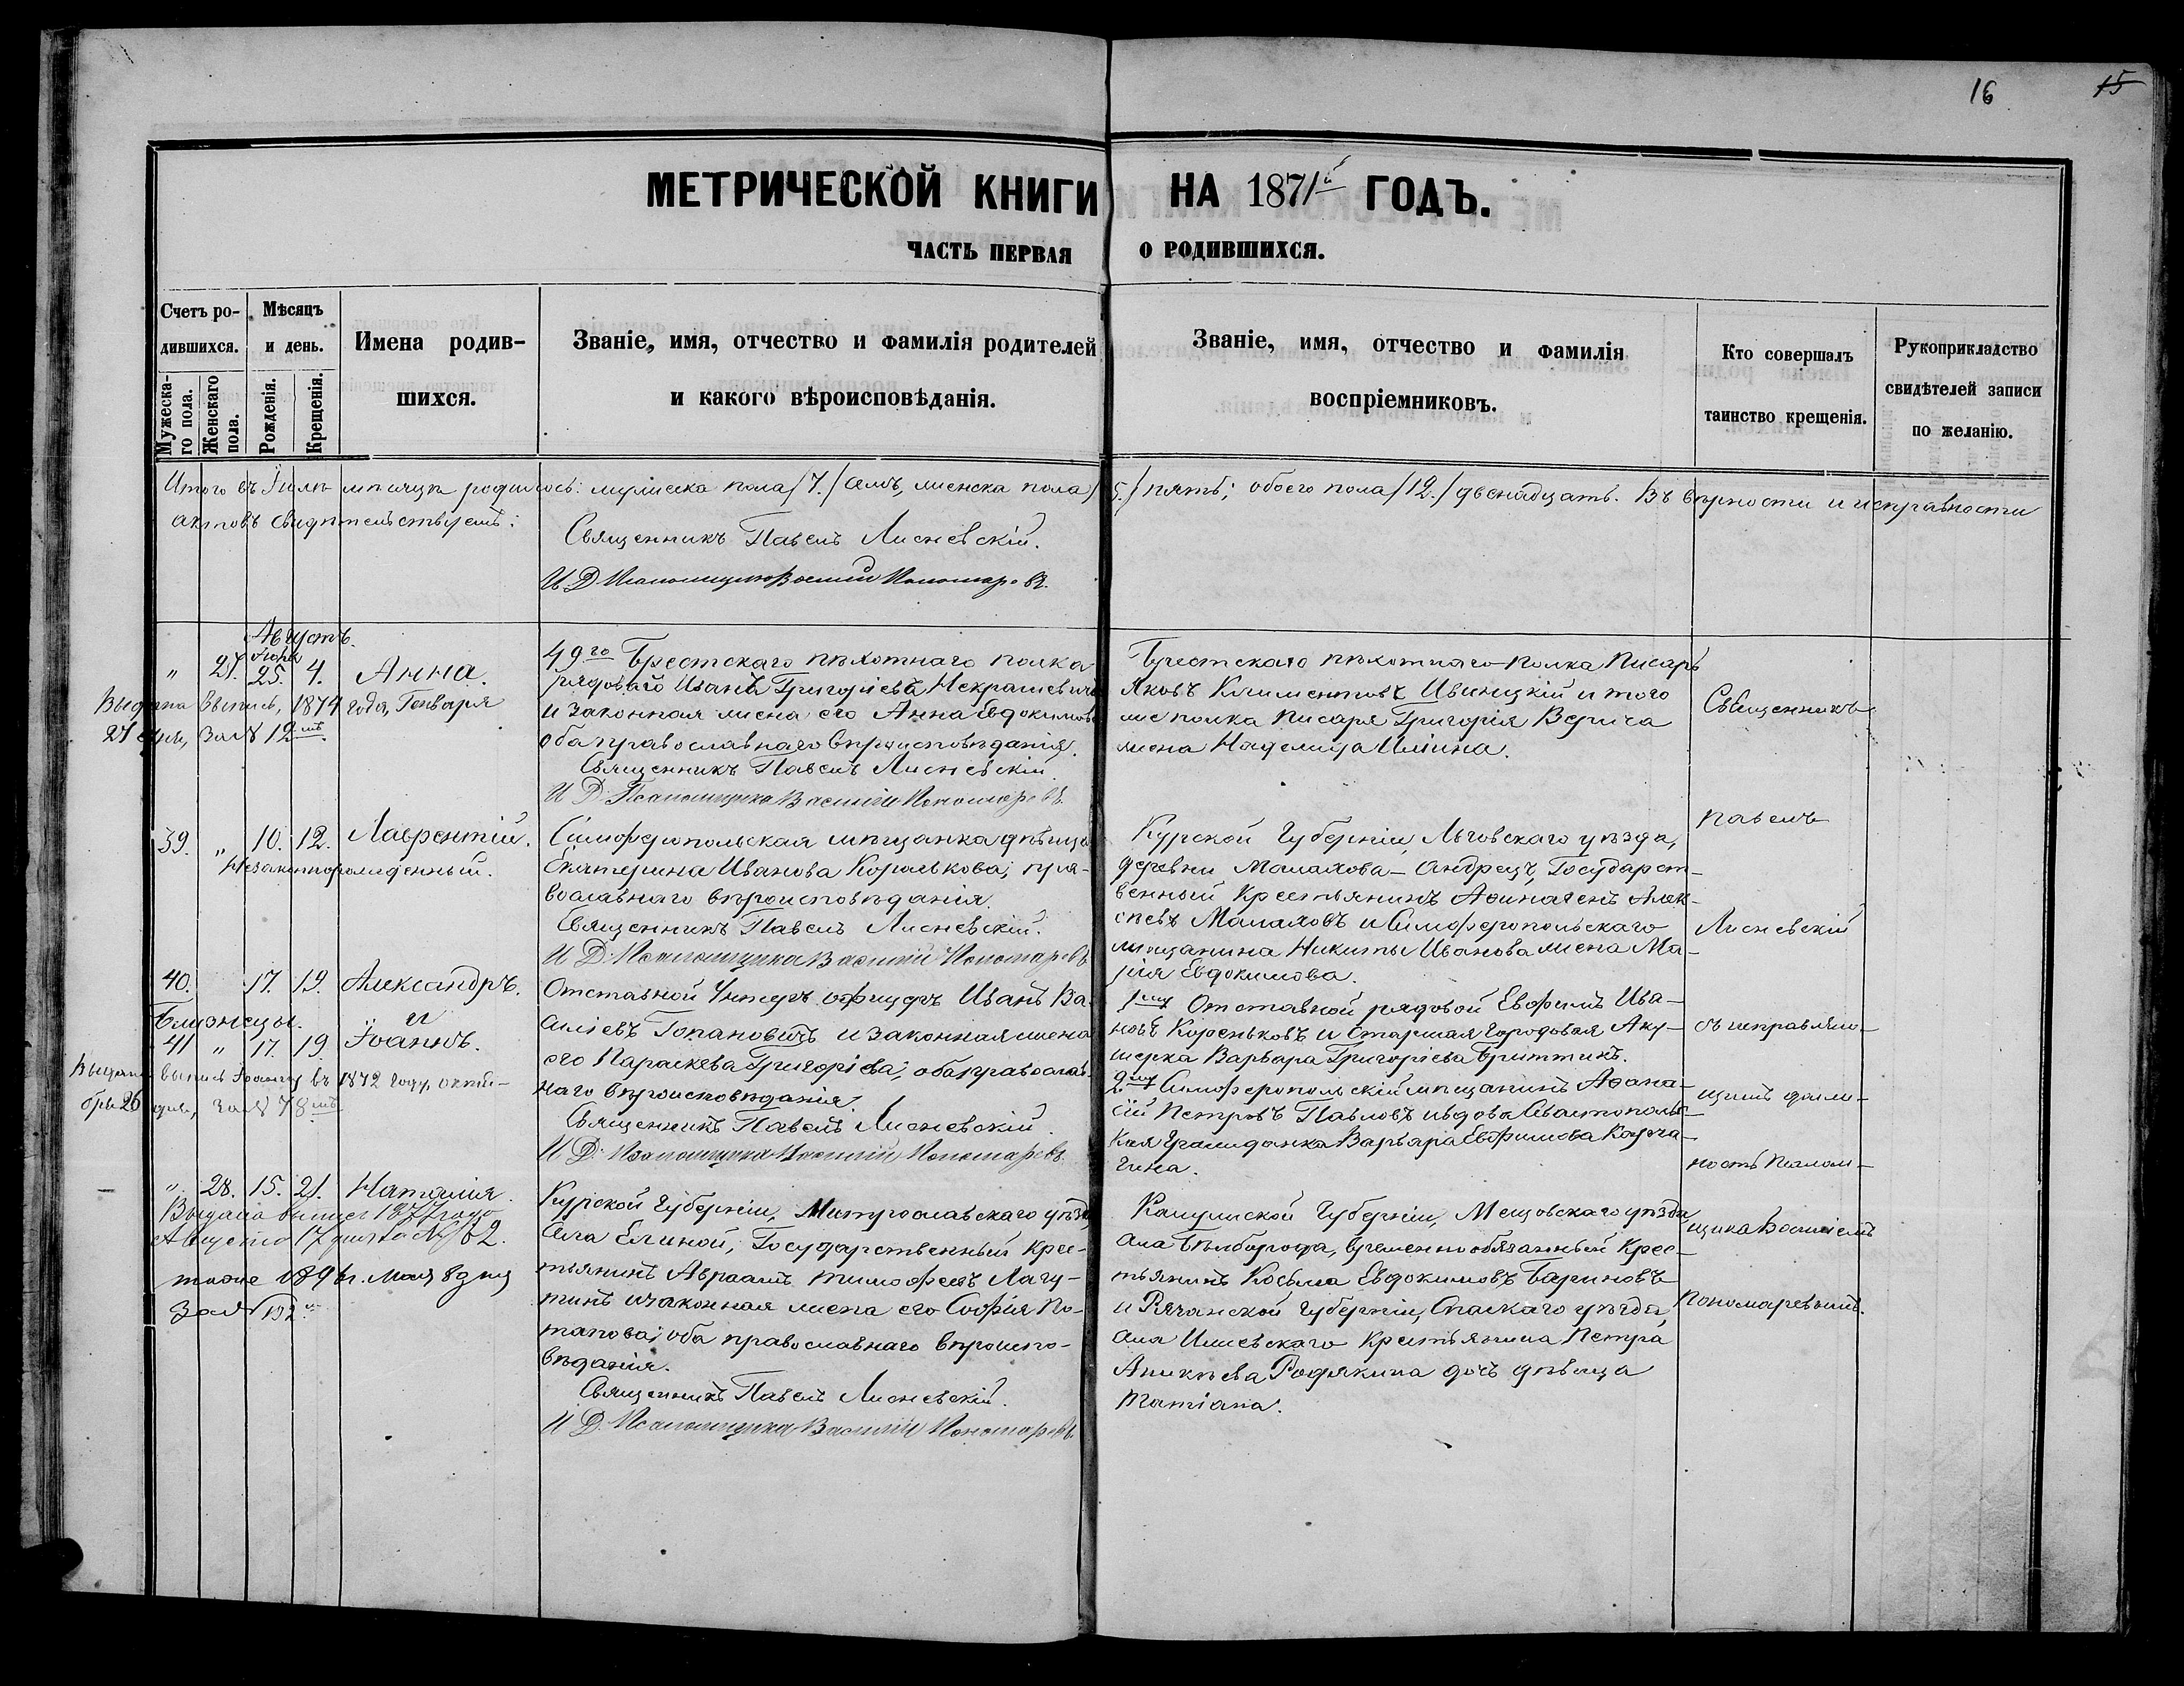 16 15
МЕТРИЧЕСКОЙ КНИГИ НА 1871й ГОДЪ.
ЧАСТЬ ПЕРВАЯ О РОДИВШИХСЯ.
Счетъ ро-
дившихся.
Мужеска-
го пола.
Женскаго
пола.
Мѣсяцъ
и день.
Рожденія.
Крещенія.
Имена родив-
шихся.
Званіе, имя, отчество и фамилія родителей
и какого вѣроисповѣданія.
Званіе, имя, отчество и фамилія
воспріемниковъ.
Кто совершалъ
таинство крещенія.
Рукоприкладство
свидѣтелей записи
по желанію.
Итого въ Іюлѣ мѣсяцѣ родилось: мужеска пола /7./ семь, женска пола /5./ пять; обоего пола /12./ двенадцать. Въ вѣрности и исправности
актовъ свидѣтельствуемъ:
Священникъ Павелъ Лисневскій.
И Д Псаломщика Василій Пономаревъ.
Августъ.
" 27. Іюля 25. 4. Анна.
Выдана выпись, 1874 года, Генваря
21 дня, за № 12мъ.
49го Брестскаго пѣхотнаго полка
рядоваго Иванъ Григоріевъ Некрашевичъ
и законная жена его Анна Евдокимова
оба православнаго вѣроисповѣданія.
Священникъ Павелъ Лисневскій.
И Д: Псаломщика Василій Пономаревъ.
Брестскаго пѣхотнаго полка Писарь
Яковъ Климентовъ Ивицкій и того
же полка писаря Григорія Верича
жена Надежда Ильина.
39. " 10. 12. Лаврентій.
Незаконнорожденный.
Симферопольская мѣщанка дѣвица
Екатерина Иванова Королькова; пра-
вославнаго вѣроисповѣданія.
Священникъ Павелъ Лисневскій.
И Д: Псаломщика Василій Пономаревъ
Курской Губерніи, Льговскаго уѣзда,
деревни Малахова- Государст-
венный крестьянинъ Алек-
сѣевъ Малаховъ и Симферопольскаго
мѣщанина Никиты Иванова жена Ма-
рія Евдокимова.
40. 17. 19. Александръ.
Близнецы. и
41 " 17. 19. Іоаннъ.
Выдана выпись Іоанну въ 1872 году, октя-
бря 26 дня, за № 78мъ.
Отставной Унтеръ офицеръ Иванъ Ва-
силіевъ Гопановичъ и законная жена
его Параскева Григоріева; оба православ-
наго вѣроисповѣданія.
Священникъ Павелъ Лисневскій.
И Д: Псаломщика Василій Пономаревъ
1му Отставной рядовой Евфимъ Ива-
новъ Кореньковъ и Старшая городовая Аку-
шерка Варвара Григоріева Бриттикъ.
2му Симферопольскій мѣщанинъ Аѳана-
сій Петровъ Павловъ и вдова Севастополь-
кая Гражданка Варвара Евфимова Карча-
гина.
" 28. 15. 21. Наталія.
Выдана выпись 1877 года
Августа 17 дня за № 62.
тоже 1896 г. Мая 8 дня
за № 192
Курской Губерніи, Митрославскаго уѣзда
села Елиной, Государственный крес-
тьянинъ Авраамъ Тимофеевъ Лагу-
тинъ и законная жена его Софія По-
тапова; оба православнаго вѣроиспо-
вѣданія.
Священникъ Павелъ Лисневскій.
И Д: Псаломщика Василій Пономаревъ.
Калужской Губерніи, Мещовскаго уѣзда
села Бѣлгорода, временнообязанный крес-
тьянинъ Косьма Евдокимовъ Бариновъ
и Рязанской Губерніи, Спаскаго уѣзда,
села Ижевскаго крестьянина Петра
Аникѣева Родякина дочь дѣвица
Татіана.
Священникъ
Павелъ
Лисневскій
съ исправляю-
щимъ долж-
ность Псалом-
щика Василіемъ
Пономаревымъ.